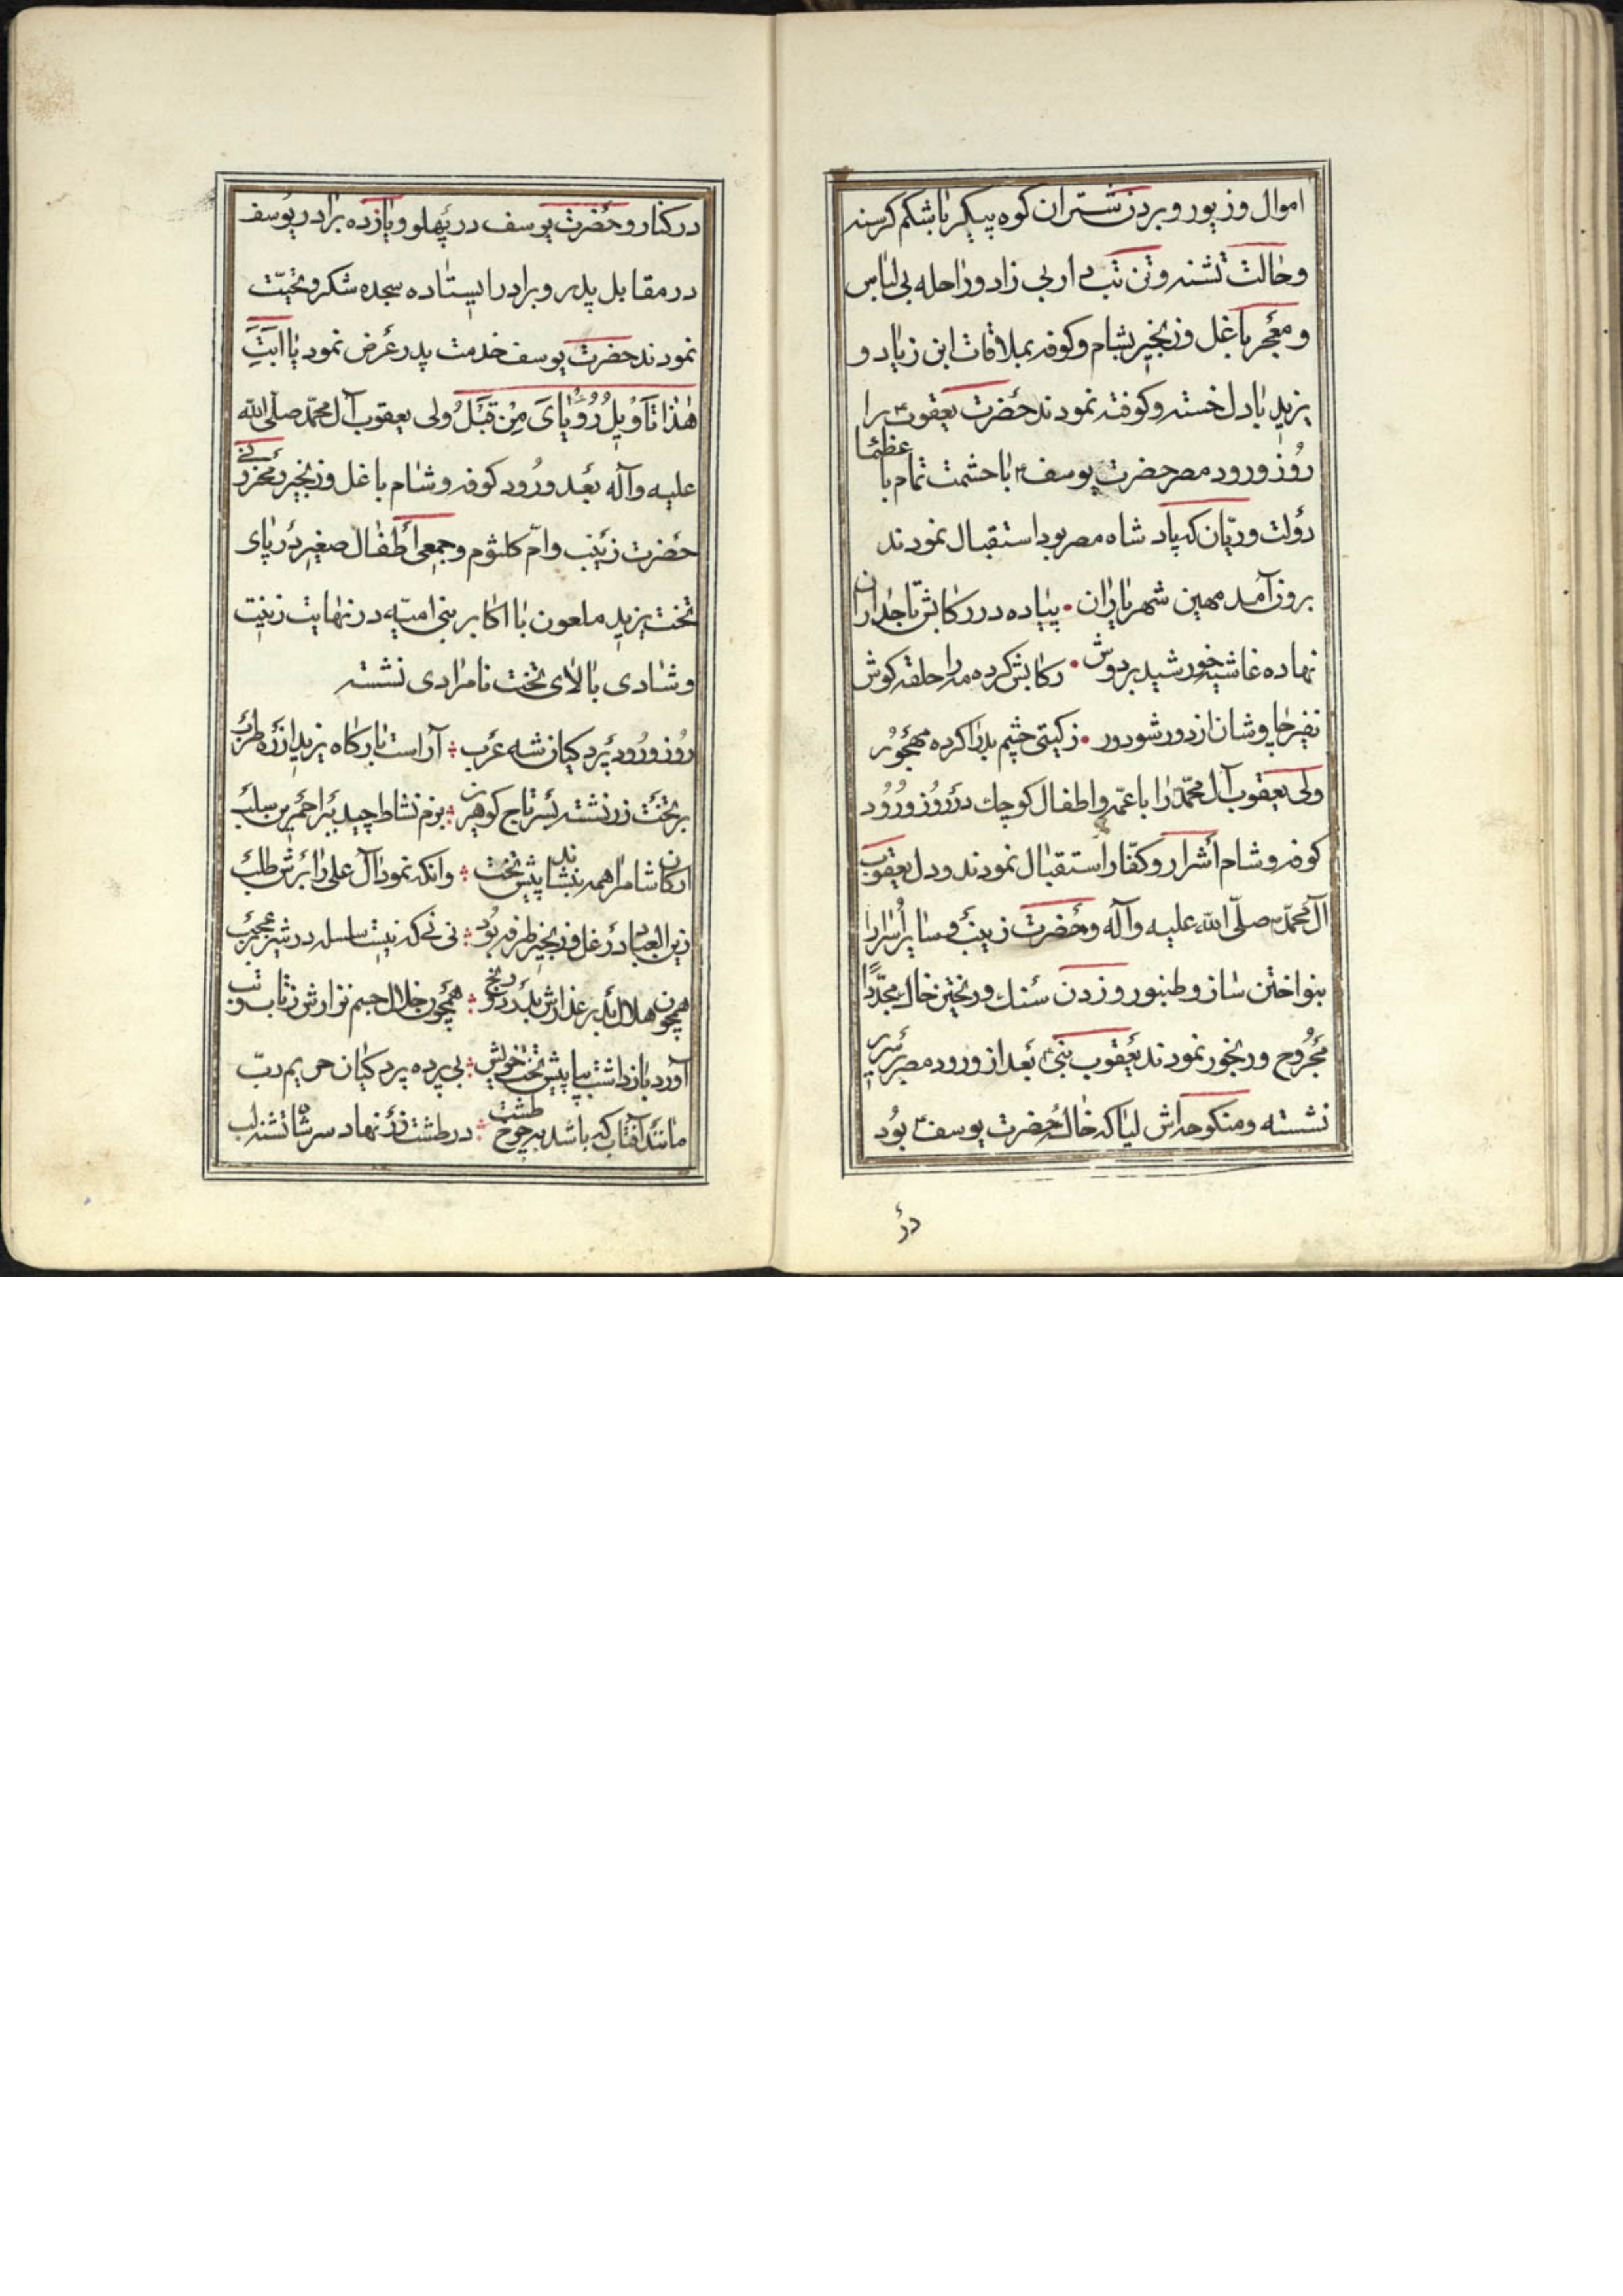 اموال و زیور و بر دزد شتران کوه پیکر با شکم کرسنه
و حالت تشنه و تن تب دار بی زاد و راحله بی لباس
و معجر با غل و زنجیر بشام و کوفه بملاقات ابن زیاد و
یزید با دل خسته و کوفته نمودند حضرت یعقوب ع را
روز ورود مصر حضرت یوسف ع با حشمت تمام با عظمای
دولت و ریّان که پادشاه مصر بود استقبال نمودند
برون آمد مهین شهریاران • پیاده در رکابش تاجداران
نهاده غاشیه خورشید بر دوش • رکابش کرده مه را حلقه کوش
نفیر چاوشان از دور شو دور • ز کیتی چشم بد را کرده مهجور
ولی یعقوب آل محمّد را با عمّه و اطفال کوچک در روز ورود
کوفه و شام اشرار و کفّار استقبال نمودند و دل یعقوب
آل محمّد صلّی الله علیه و آله و حضرت زینب و سایر اُسَرا را
بنواختن ساز و طنبور و زدن سنک و ریختن خاک مجدّداً
مجروح و رنجور نمودند یعقوب نبی ع بعد از ورود مصر بر سریر
نشسته و منکوحه اش لیا که خاله حضرت یوسف ع بود
در
در کنار و حضرت یوسف در پهلو و یازده برادر یوسف
در مقابل پدر و برادر ایستاده سجده شکر و تحیّت
نمودند حضرت یوسف خدمت پدر عرض نمود یا ابَتِ
هٰذا تَأویلُ رُؤیایَ مِنْ قَبْلُ ولی یعقوب آل محمّد صلّی الله
علیه و آله بعد ورود کوفه و شام با غل و زنجیر و محزونی
حضرت زینب و امّ کلثوم و جمعی اطفال صغیر در پای
تخت یزید ملعون با اکابر بنی امیّه در نهایت زینت
و شادی بالای تخت نامرادی نشسته
روز ورود پردکیان شه عرب ؛ آراست بارکاه یزید از ره طرب
بر تخت زر نشته بسر تاج کوهرین ؛ بزم نشاط چید ببر احمرین سلب
ارکان شام را همه بنشاند پیش تخت ؛ وانکه نمود آل علی را برش طلب
زین العباد در غل و زنجیر طرفه بود ؛ نی نی که نیست سلسله در شیر عجب
همچون هلال بدر عذارش ز درد و رنج ؛ همچون خلال جسم نزارش ز تاب و تب
آورد بازداشت بپا پیش تخت خویش ؛ بی پرده پردکیان حریم ربّ
مانند آفتاب که باشد بچرخ طشت ؛ در طشت زر نهاد سر شاه تشنه لب